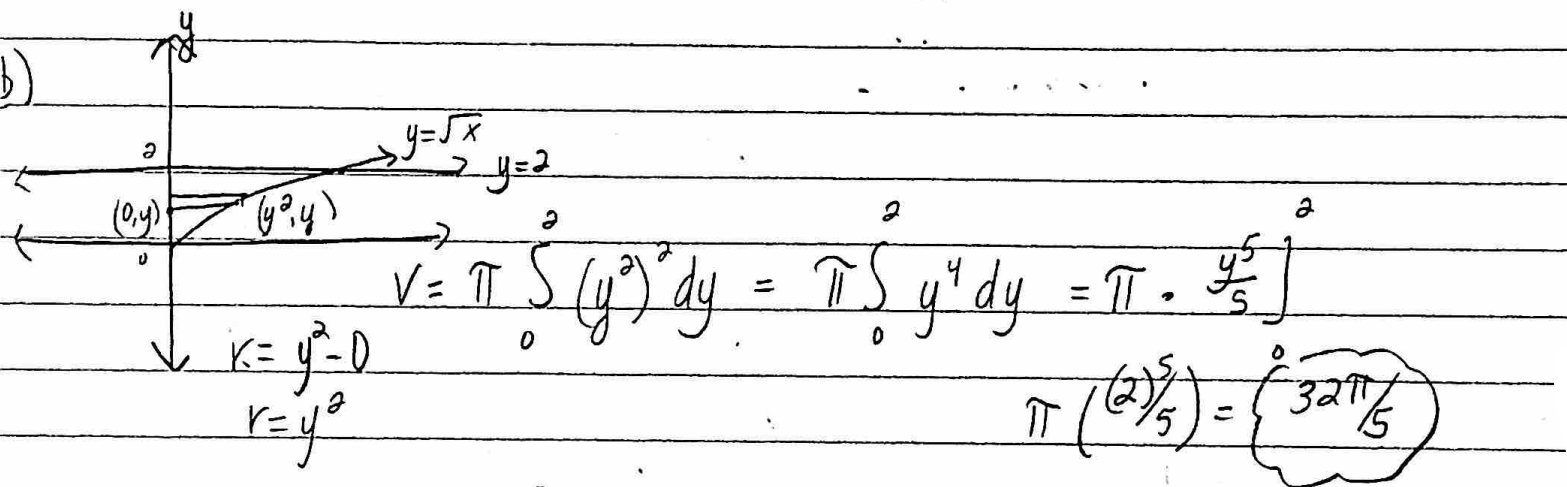 y
b)
y=√x
2
y=2
(0,y) (y²,y)
0
V = π ∫₀² (y²)² dy = π ∫₀² y⁴ dy = π · y⁵/5 ]₀²
r = y² - 0
r = y²
π ((2)⁵/5) = 32π/5